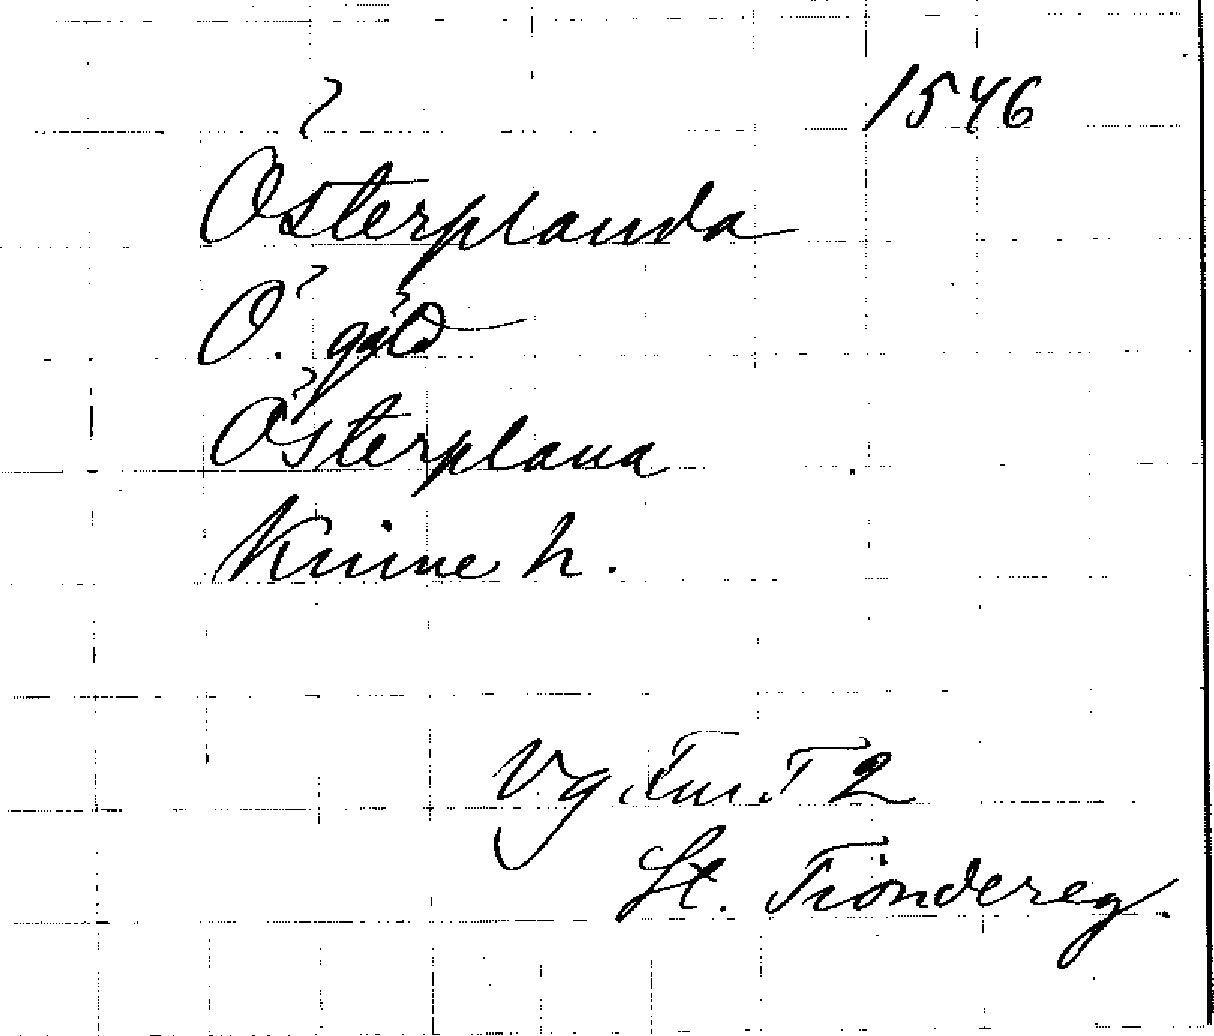 1546
Österplanda
Ö. gäld
Österplana
Kinne h.
Vg T 2
St. Tiondereg.